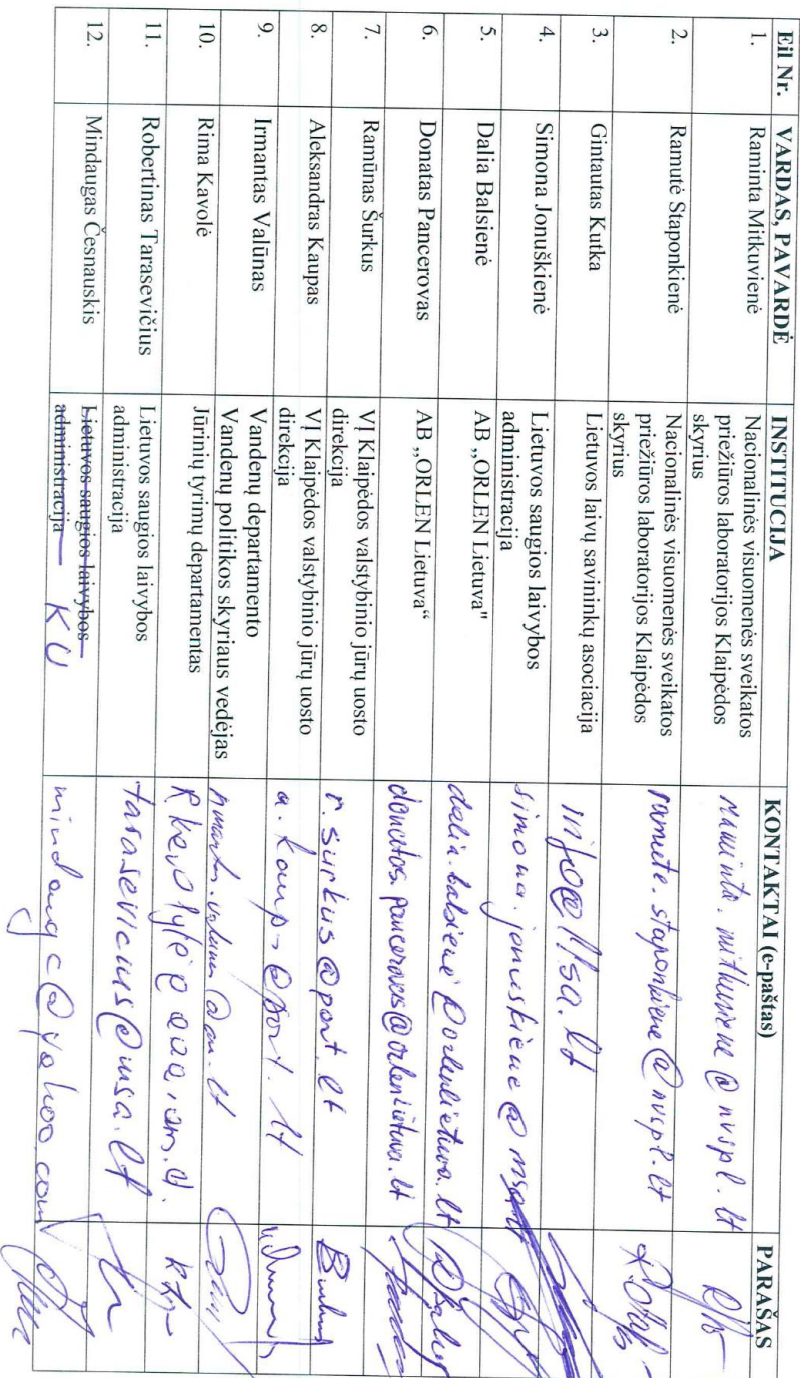 Eil Nr. VARDAS, PAVARDĖ INSTITUCIJA KONTAKTAI (e-paštas) PARAŠAS
1. Raminta Mitkuvienė Nacionalinės visuomenės sveikatos
priežiūros laboratorijos Klaipėdos
skyrius
2. Ramutė Staponkienė Nacionalinės visuomenės sveikatos
priežiūros laboratorijos Klaipėdos
skyrius
ramute.staponkiene@nvspl.lt
3. Gintautas Kutka Lietuvos laivų savininkų asociacija info@llsa.lt
4. Simona Jonuškienė Lietuvos saugios laivybos
administracija
5. Dalia Balsienė AB „ORLEN Lietuva" dalia.balsiene@orlenlietuva.lt
6. Donatas Pancerovas AB „ORLEN Lietuva“ donatas.pancerovas@orlenlietuva.lt
7. Ramūnas Šurkus VĮ Klaipėdos valstybinio jūrų uosto
direkcija
r.surkus@port.lt
8. Aleksandras Kaupas VĮ Klaipėdos valstybinio jūrų uosto
direkcija
9. Irmantas Valūnas Vandenų departamento
Vandenų politikos skyriaus vedėjas
10. Rima Kavolė Jūrinių tyrimų departamentas
11. Robertinas Tarasevičius Lietuvos saugios laivybos
administracija
tarasevicius@msa.lt
12. Mindaugas Česnauskis Lietuvos saugios laivybos
administracija KU
mindaugc@yahoo.com